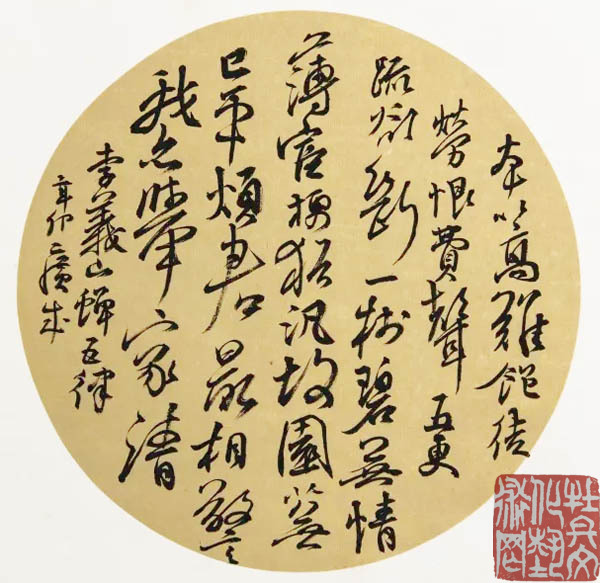 本以高難飽徒
勞恨費聲五更
疏欲斷一樹碧無情
薄宦梗猶汎故園蕪
已平煩君最相警
我亦舉家清
李義山蟬五律
辛卯廣生